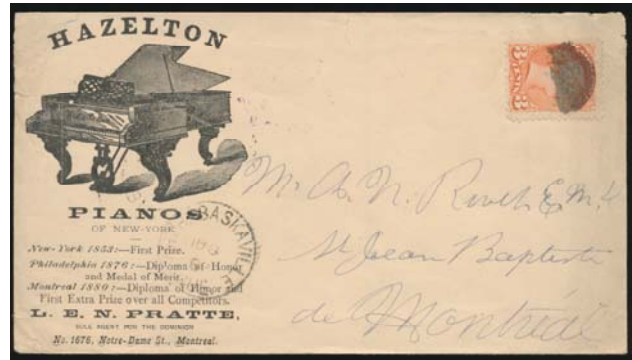 HAZELTON
PIANOS
OF NEW-YORK
New-York 1853:—First Prize.
Philadelphia 1876:—Diploma of Honor
and Medal of Merit.
Montreal 1880:—Diploma of Honor and
First Extra Prize over all Competitors.
L. E. N. PRATTE,
SOLE AGENT FOR THE DOMINION
No. 1676, Notre-Dame St., Montreal.
3
3
BASKAVILLE
M. A. N. Rivet
St Jean Baptiste
de Montréal